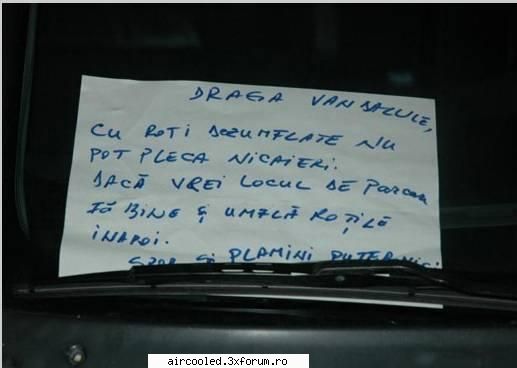 DRAGA VANDALULE,
CU ROTI DEZUMFLATE NU
POT PLECA NICAIERI.
DACĂ VREI LOCUL DE PARCARE
FĂ BINE ȘI UMFLĂ ROȚILE
INAPOI.
SPOR ȘI PLAMINI PUTERNICI
aircooled.3xforum.ro